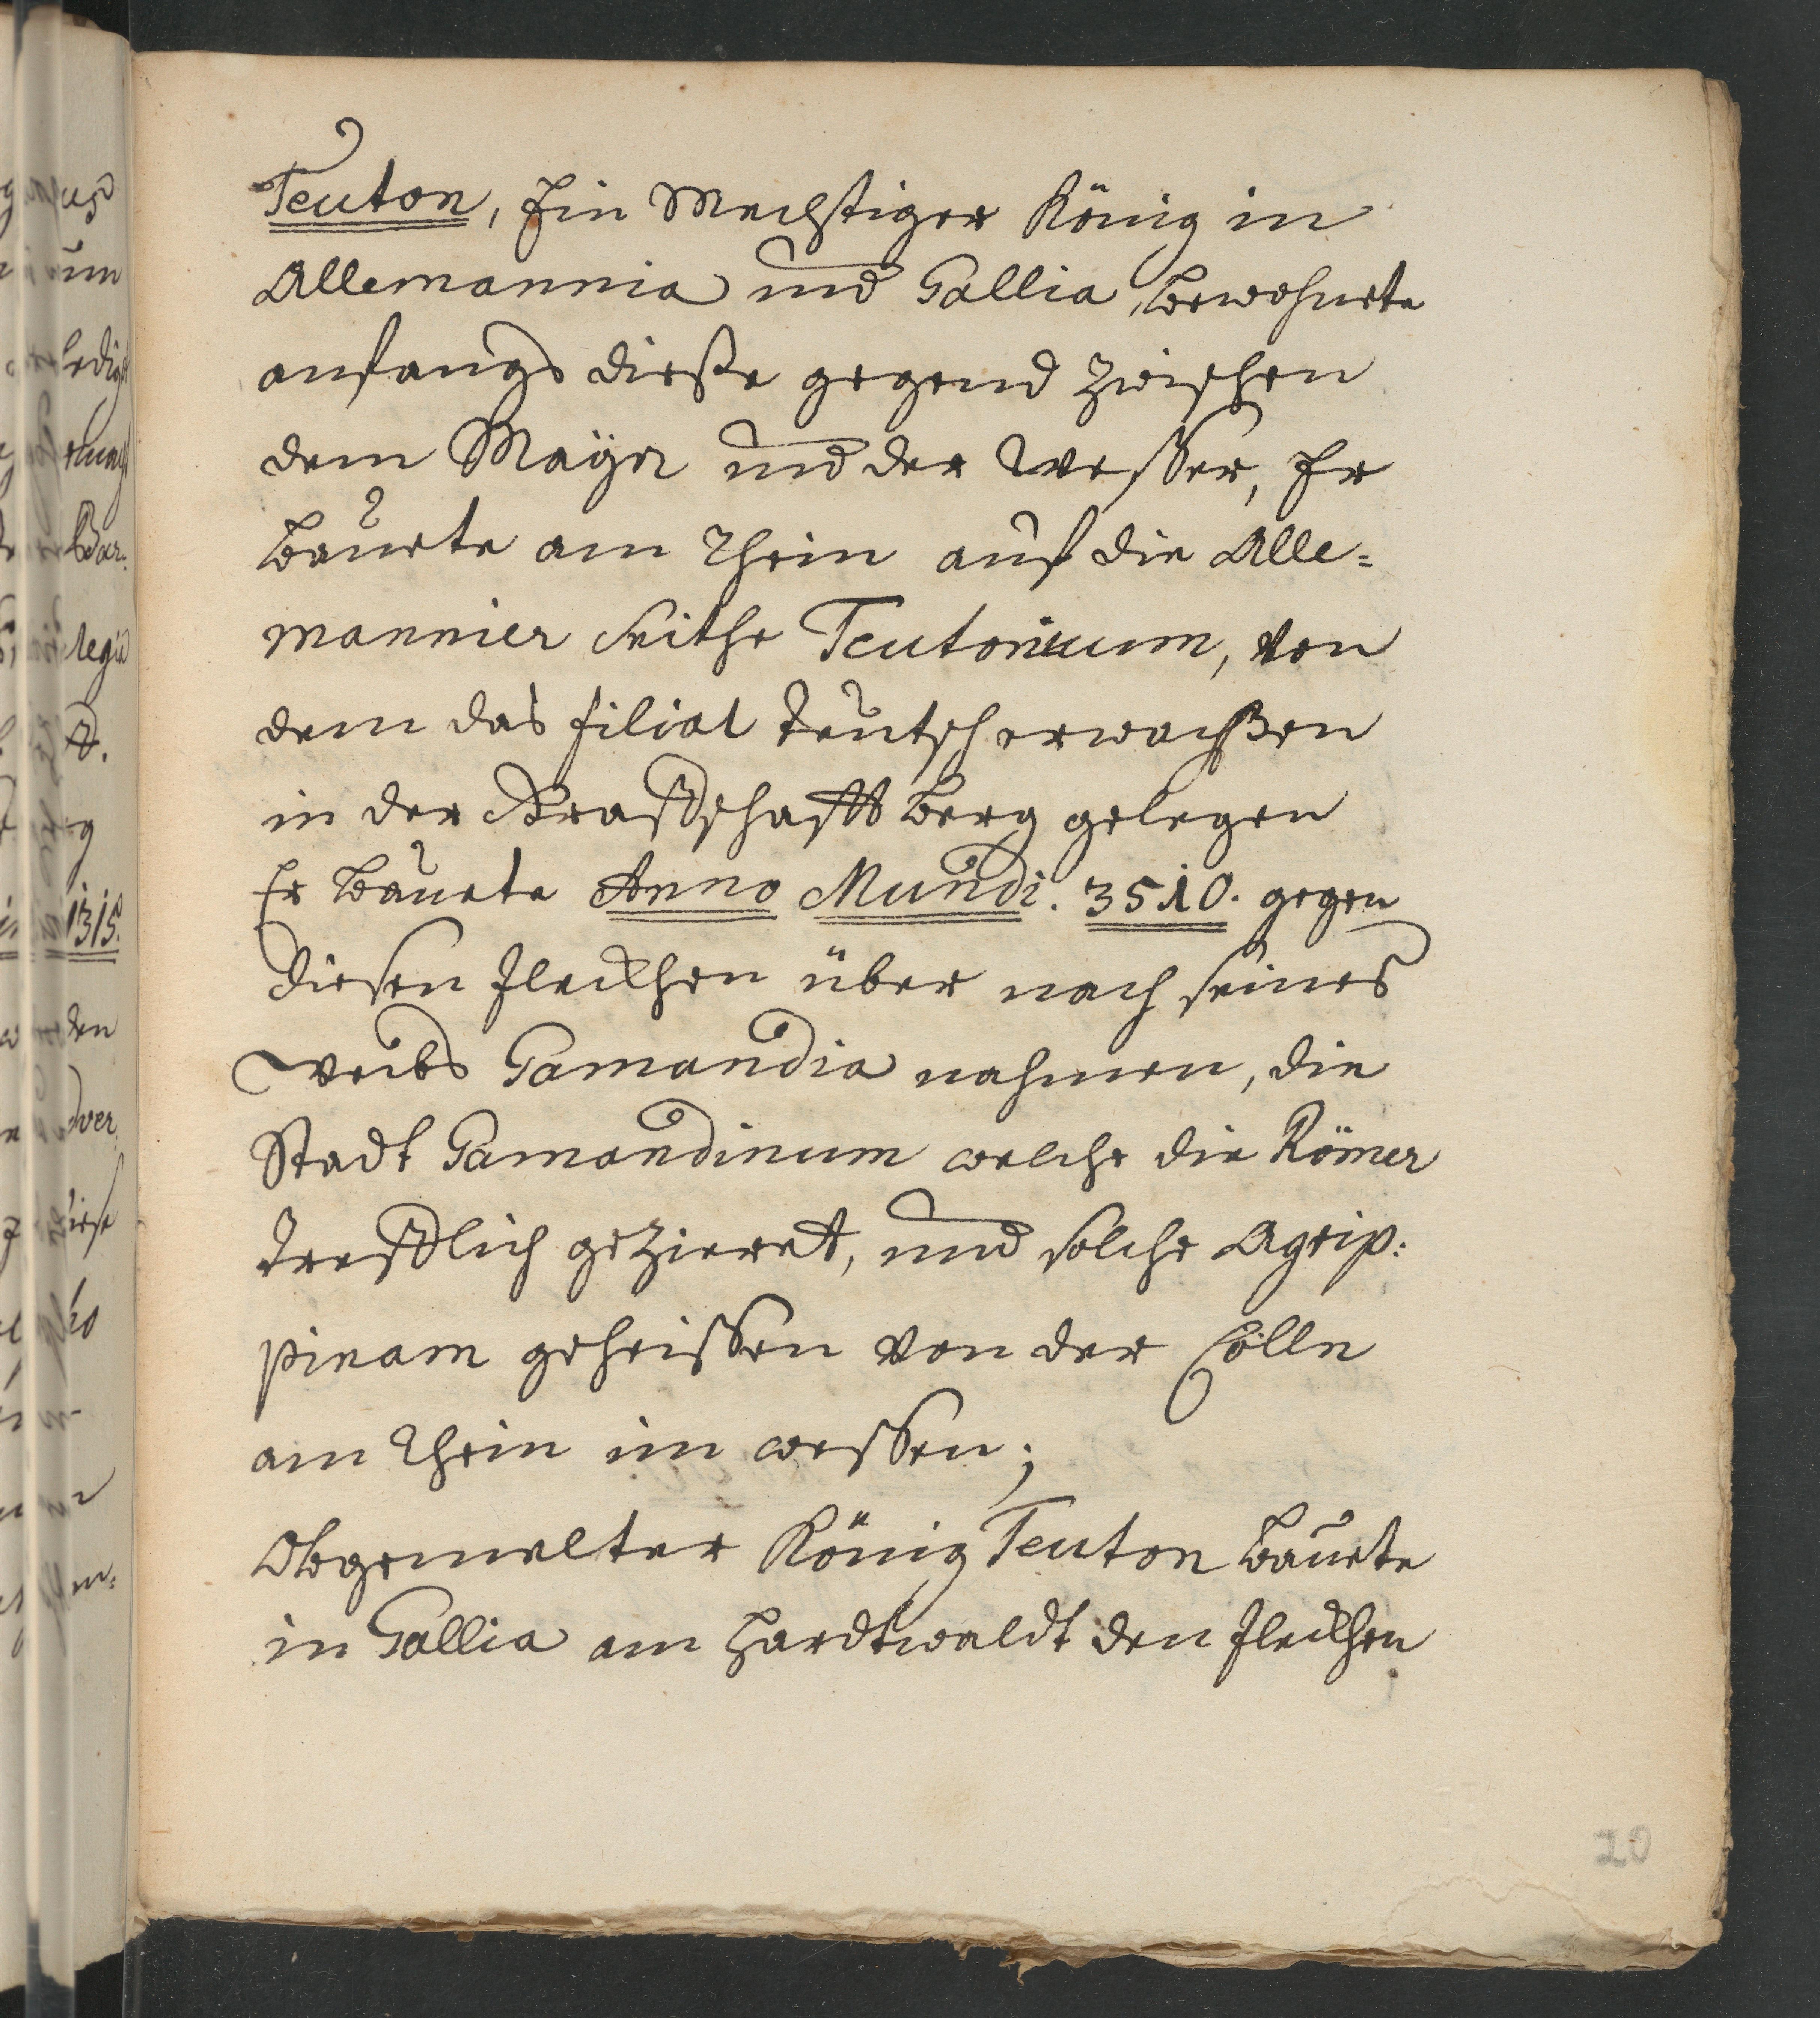 Teuton, Ein Mechtiger König in
Allemannia und Gallia, bewohnete
anfangs dieße gegend zwischen
dem Maÿn und der Wesser, Er
bauete am Rhein auf die Alle=
mannier Seithe Teutonicum, von
dem das filial teutsch erwachßen
in der Graffschafft Berg gelegen
Er bauete Anno Mundi. 3510. gegen
diesen flecken über nach seines
weibs Gamandia nahmen, die
Stadt Gamandinum welche die Römer
trefflich gezieret, und solche Agrip:
pinam geheissen von der Cölln
am Rhein im wessen;
Obgemelter König Teuton bauete
in Gallia am Hardtwaldt den flecken
20